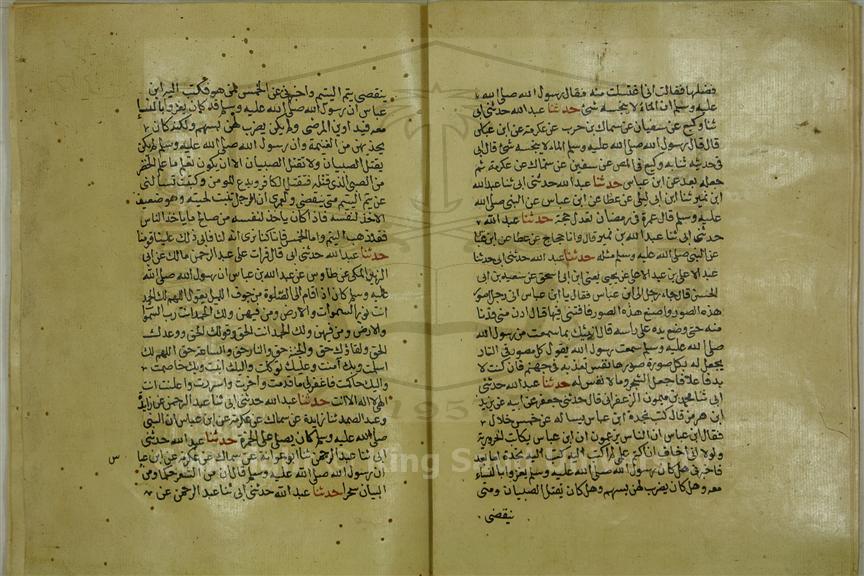 فضلها فقالت انى اغتسلت منه فقال رسول الله صلى الله
عليه وسلم ان الماء لا ينجسه شئ حدثنا عبد الله حدثنى ابى
ثنا وكيع عن سفيان عن سماك بن حرب عن عكرمة عن ابن عباس
قال قال رسول الله صلى الله عليه وسلم الماء لا ينجسه شئ قال ابى
فى حديثه ثنا به وكيع فى المصنف عن سفين عن سماك عن عكرمة ثم
جعله بعد عن ابن عباس حدثنا عبد الله حدثنى ابى ثنا عبد الله
ابن نمير ثنا ابن ابى ليلى عن عطا عن ابن عباس عن النبى صلى الله
عليه وسلم قال عمرة فى رمضان تعدل حجة حدثنا عبد الله
حدثنى ابى ثنا عبد الله بن نمير قال وانا حجاج عن عطا عن ابن عباس
عن النبى صلى الله عليه وسلم مثله حدثنا عبد الله حدثنى ابى حدثنا
عبد الاعلى بن عبد الاعلى عن يحيى يعنى ابن ابى اسحق عن سعيد بن ابى
الحسن قال جاء رجل الى ابن عباس فقال يا ابن عباس انى رجل اصور
هذه الصور واصنع هذه الصور فافتنى فيها قال ادن منى فدنا
منه حتى وضع يده على راسه قال انبئك بما سمعت من رسول الله
صلى الله عليه وسلم سمعت رسول الله يقول كل مصور فى النار
يجعل له بكل صورة صورها نفس تعذبه فى جهنم فان كنت لا
بد فاعلا فاجعل الشجر وما لا نفس له حدثنا عبد الله حدثنى
ابى ثنا محمد بن ميمون الزعفرانى قال حدثنى جعفر عن ابيه عن يزيد
ابن هرمز قال كتب نجدة ابن عباس يساله عن خمس خلال
فقال ابن عباس ان الناس يزعمون ان ابن عباس يكاتب الحرورية
ولولا انى اخاف ان اكتم علمى لم اكتب اليه كتب اليه نجدة اما بعد
فاخبرنى هل كان رسول الله صلى الله عليه وسلم يغزو بالنساء
معه وهل كان يضرب لهن بسهم وهل كان يقتل الصبيان ومتى
ينقضى
ينقضى يتم اليتيم واخبرنى عن الخمس لمن هو فكتب اليه ابن
عباس ان رسول الله صلى الله عليه وسلم قد كان يغزو بالنساء
معه فيداوين المرضى ولم يكن يضرب لهن بسهم ولكنه كان
يحذيهن من الغنيمة وان رسول الله صلى الله عليه وسلم لم يكن
يقتل الصبيان ولا تقتل الصبيان الا ان تكون تعلم ما علم الخضر
من الصبى الذى قتله فتقتل الكافر وتدع المومن وكتبت تسالنى
عن يتم اليتيم متى ينقضى ولعمرى ان الرجل تنبت لحيته وهو ضعيف
الاخذ لنفسه فاذا كان ياخذ لنفسه من صالح ما ياخذ الناس
فقد ذهب اليتم واما الخمس فانا كنا نرى انه لنا فابى ذلك علينا قومنا
حدثنا عبد الله حدثنى ابى قال قرات على عبد الرحمن مالك عن ابى
الزبير المكى عن طاوس عن عبد الله بن عباس ان رسول الله صلى الله
عليه وسلم كان اذا قام الى الصلوة من جوف الليل يقول اللهم لك الحمد
انت نور السموات والارض ومن فيهن ولك الحمد انت رب السموات
والارض ومن فيهن ولك الحمد انت الحق وقولك الحق ووعدك
الحق ولقاؤك حق والجنة حق والنار حق والساعة حق اللهم لك
اسلمت وبك آمنت وعليك توكلت واليك انبت وبك خاصمت
واليك حاكمت فاغفر لى ما قدمت واخرت واسررت واعلنت انت
الهى لا اله الا انت حدثنا عبد الله حدثنى ابى ثنا عبد الرحمن عن زايدة
وعبد الصمد ثنا زايدة عن سماك عن عكرمة عن ابن عباس ان النبى
صلى الله عليه وسلم كان يصلى على الخمرة حدثنا عبد الله حدثنى
ابى ثنا عبد الرحمن ثنا ابو عوانة عن سماك عن عكرمة عن ابن عبا
س
ان رسول الله صلى الله عليه وسلم قال ان من الشعر حكما ومن
البيان سحرا حدثنا عبد الله حدثنى ابى ثنا عبد الرحمن عن